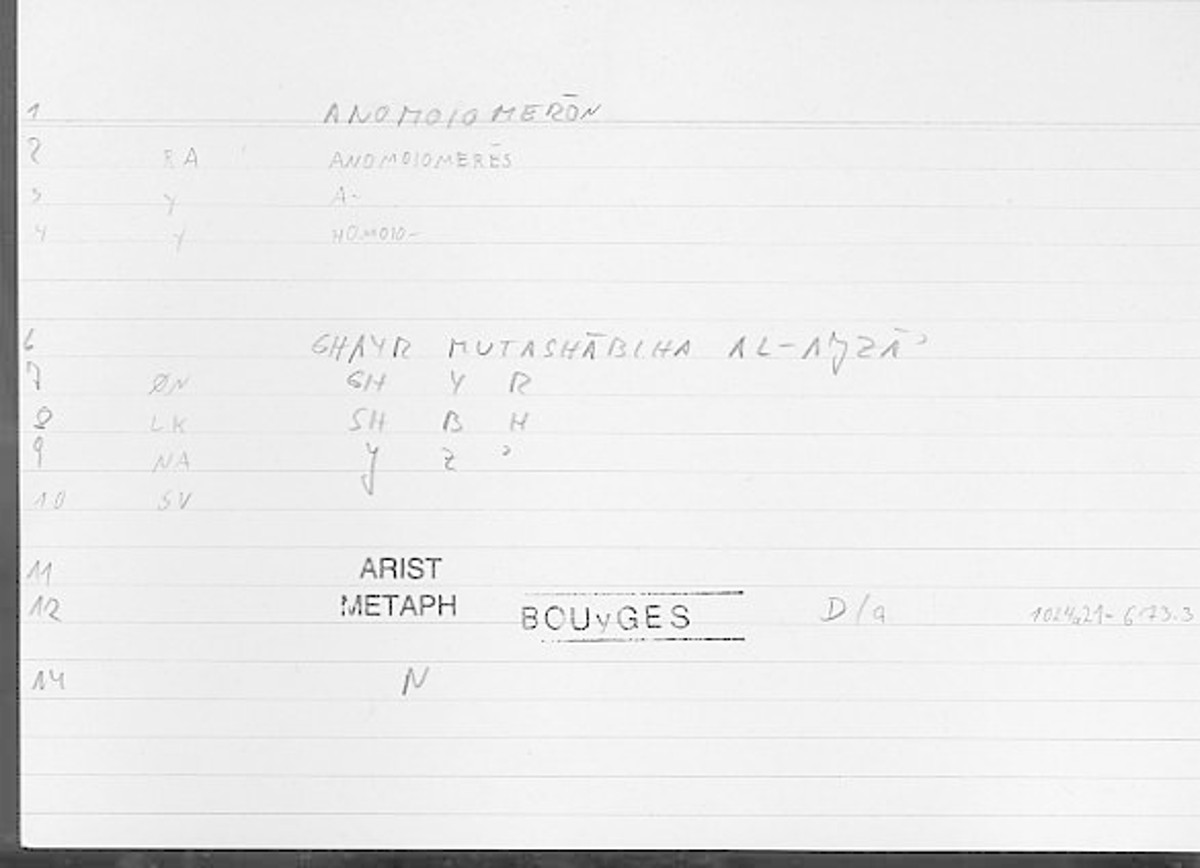 1 ANOMOIOMERŌN
2 RA ANOMOIOMERĒS
3 Y A-
4 Y HOMOIO-
6 GHAYR MUTASHĀBIHA AL-AYZĀʾ
7 ØN GH Y R
8 LK SH B H
9 NA Y Z ʾ
10 SV
11 ARIST
12 METAPH BOUYGES D/a 1024a21-673.3
14 N